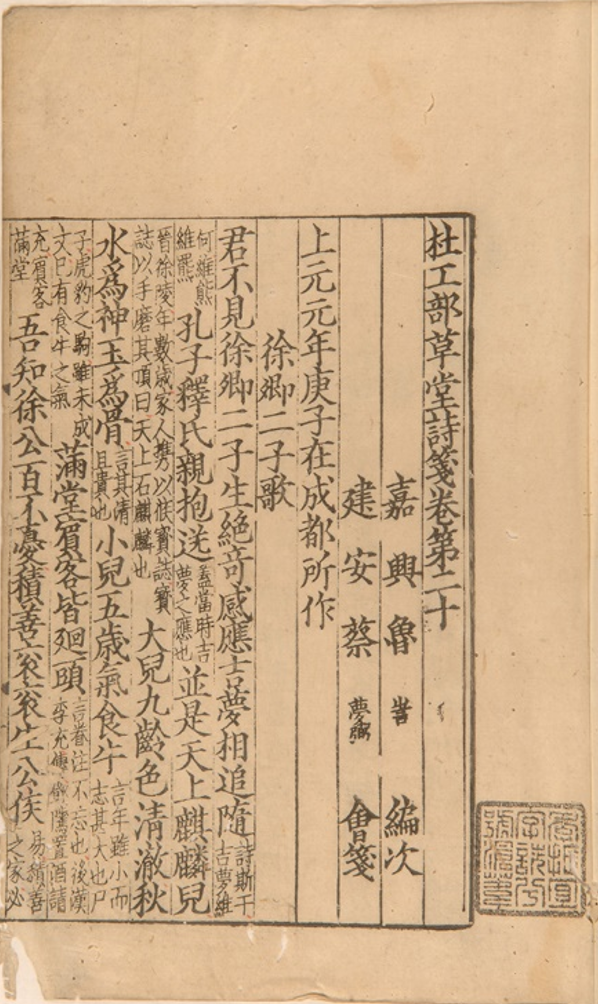 杜工部草堂詩箋卷第二十
嘉興魯訔編次
建安蔡夢弼會箋
上元元年庚子在成都所作
徐卿二子歌
君不見徐卿二子生絶奇感應吉夢相追隨詩斯干吉夢維
何維熊維羆孔子釋氏親抱送蓋當時吉夢之應也並是天上麒麟兒
晉徐陵年數歲家人携以候寶誌寶誌以手磨其頂曰天上石麒麟也大兒九齡色清澈秋
水爲神玉爲骨言其清且貴也小兒五歲氣食牛言年雖小而志甚大也尸
子虎豹之駒雖未成文已有食牛之氣滿堂賓客皆廻頭言眷注不忘也後漢李充傳隲置酒請
充賓客滿堂吾知徐公百不憂積善衮衮生公侯易積善之家必